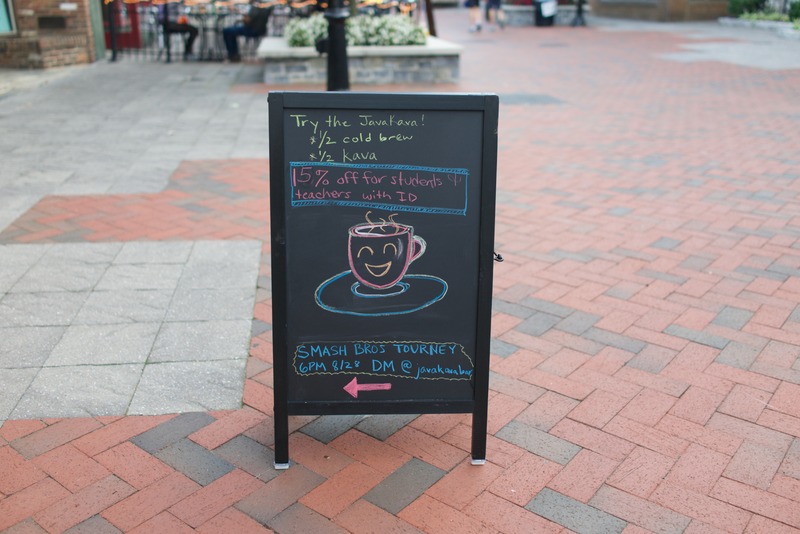 Try the JavaKava!
*1/2 cold brew
*1/2 kava
15% off for students &
teachers with ID
SMASH BROS TOURNEY
6PM 8/28 DM @javakavabar